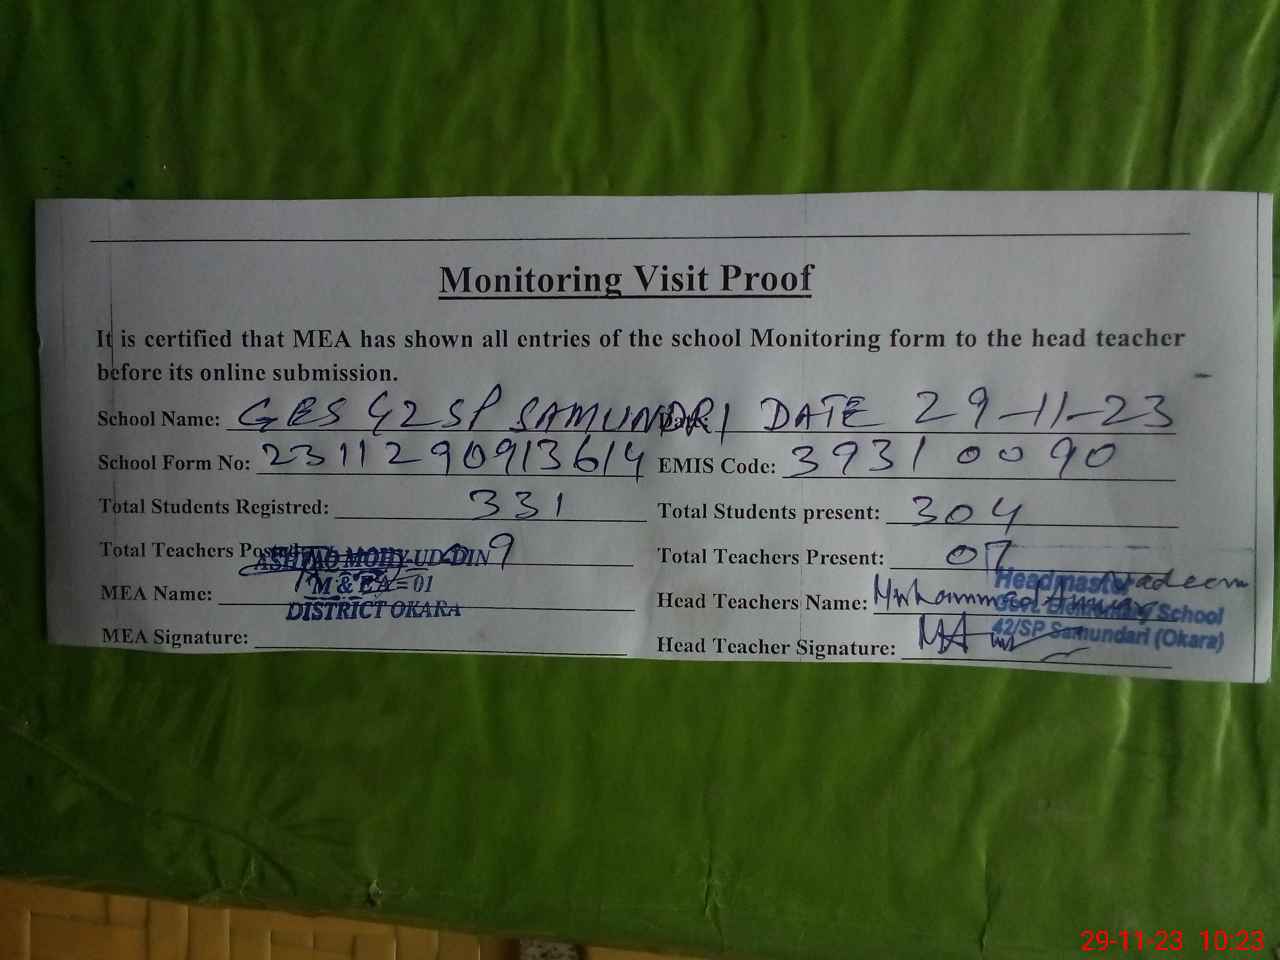 Monitoring Visit Proof
It is certified that MEA has shown all entries of the school Monitoring form to the head teacher
before its online submission.
School Name: GES 42 SP SAMUNDRI DATE 29-11-23
School Form No: 2311290913614 EMIS Code: 39310090
Total Students Registred: 331 Total Students present: 304
Total Teachers Posted 09 Total Teachers Present: 07
ASHFAQ MOHY-UD-DIN
M & EA = 01
DISTRICT OKARA
MEA Name: Head Teachers Name: Muhammad Nadeem
Headmaster
Govt. Elementary School
42/SP Samundari (Okara)
MEA Signature: Head Teacher Signature:
29-11-23 10:23